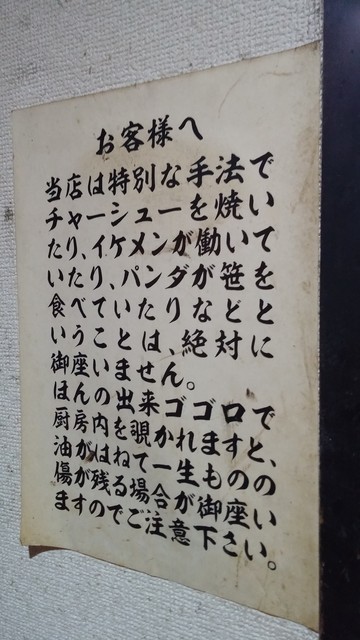 お客様へ
当店は特別な手法で
チャーシューを焼い
たり、イケメンが働いて
いたり、パンダが笹を
食べていたりなどと
いうことは、絶対に
御座いません。
ほんの出来ゴコロで
厨房内を覗かれますと、
油がはねて一生ものの
傷が残る場合も御座い
ますのでご注意下さい。